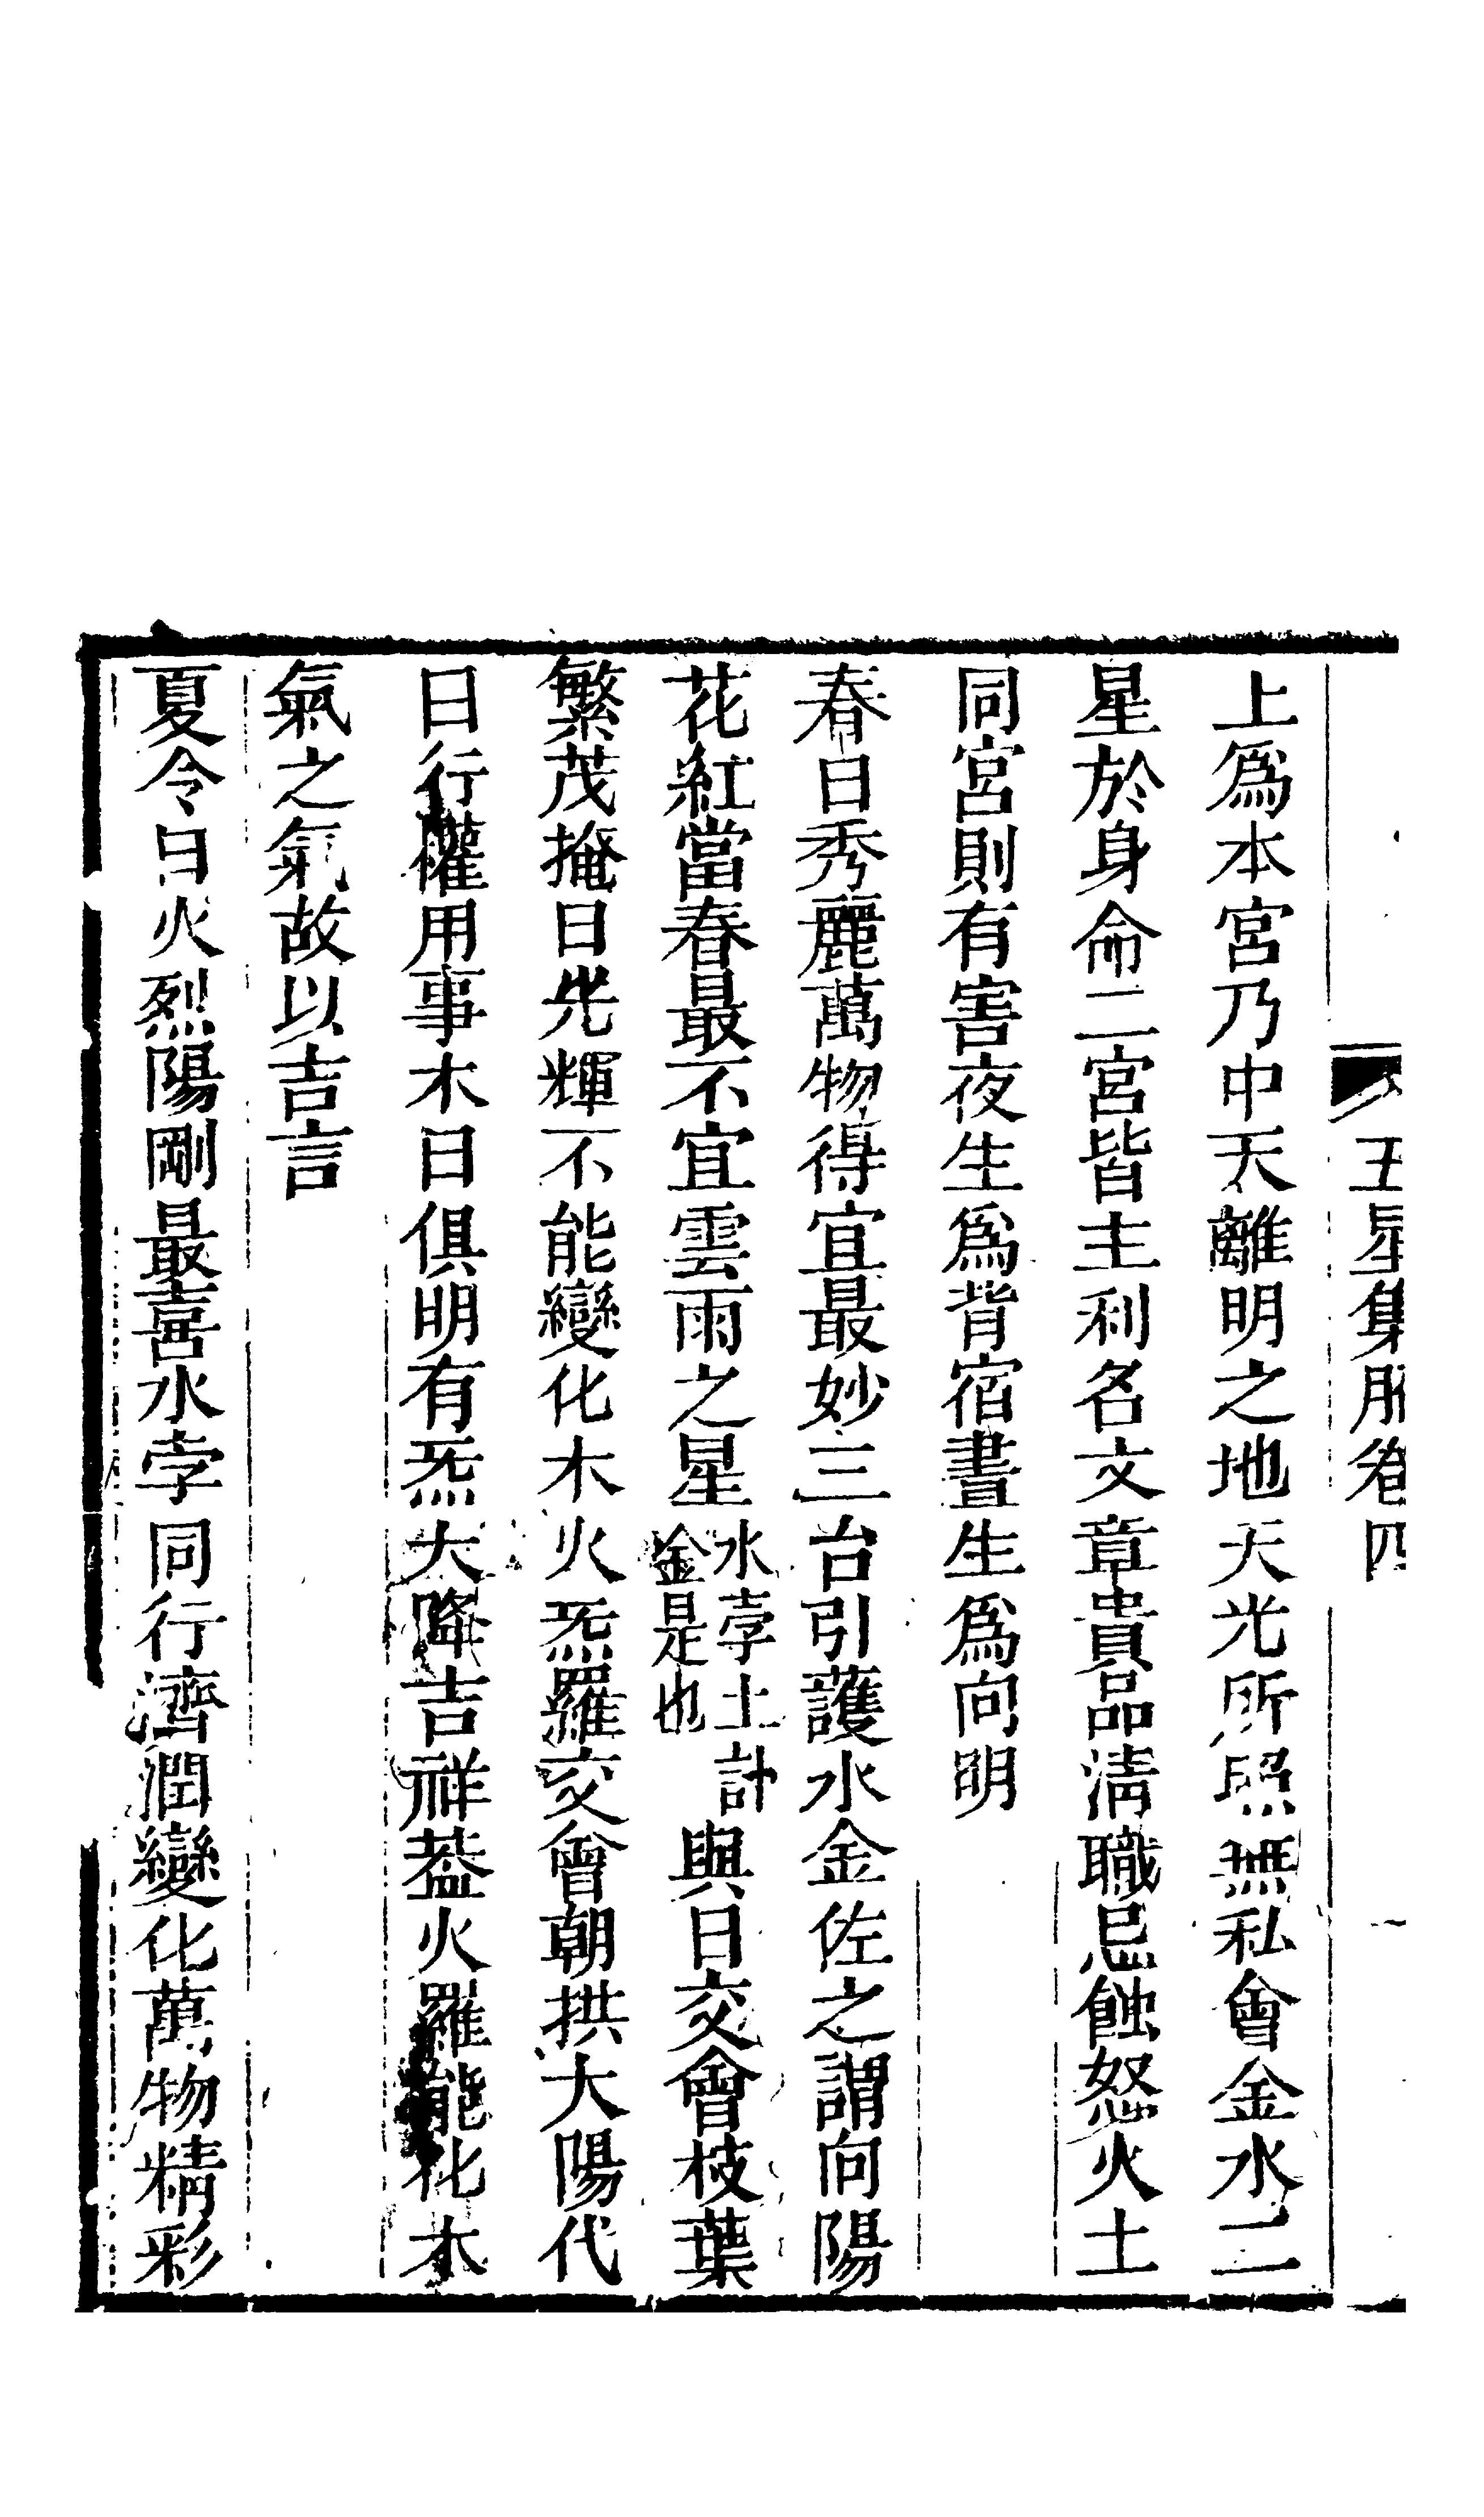 五星集腋卷四
上爲本宮乃中天離明之地天光所照無私會金水二
星於身命二宮皆主利名文章貴品清職忌蝕怒火土
同宮則有害夜生爲背宿晝生爲向明
春日秀麗萬物得宜最妙三台引護水金佐之謂向陽
花紅當春最不宜雲雨之星水孛土計金是也與日交會枝葉
繁茂掩日光輝不能變化木火炁羅交會朝拱大陽代
日行權用事木日俱明有炁大降吉祥葢火羅能化木
氣之氣故以吉言
夏令日火烈陽剛最喜水孛同行濟潤變化萬物精彩